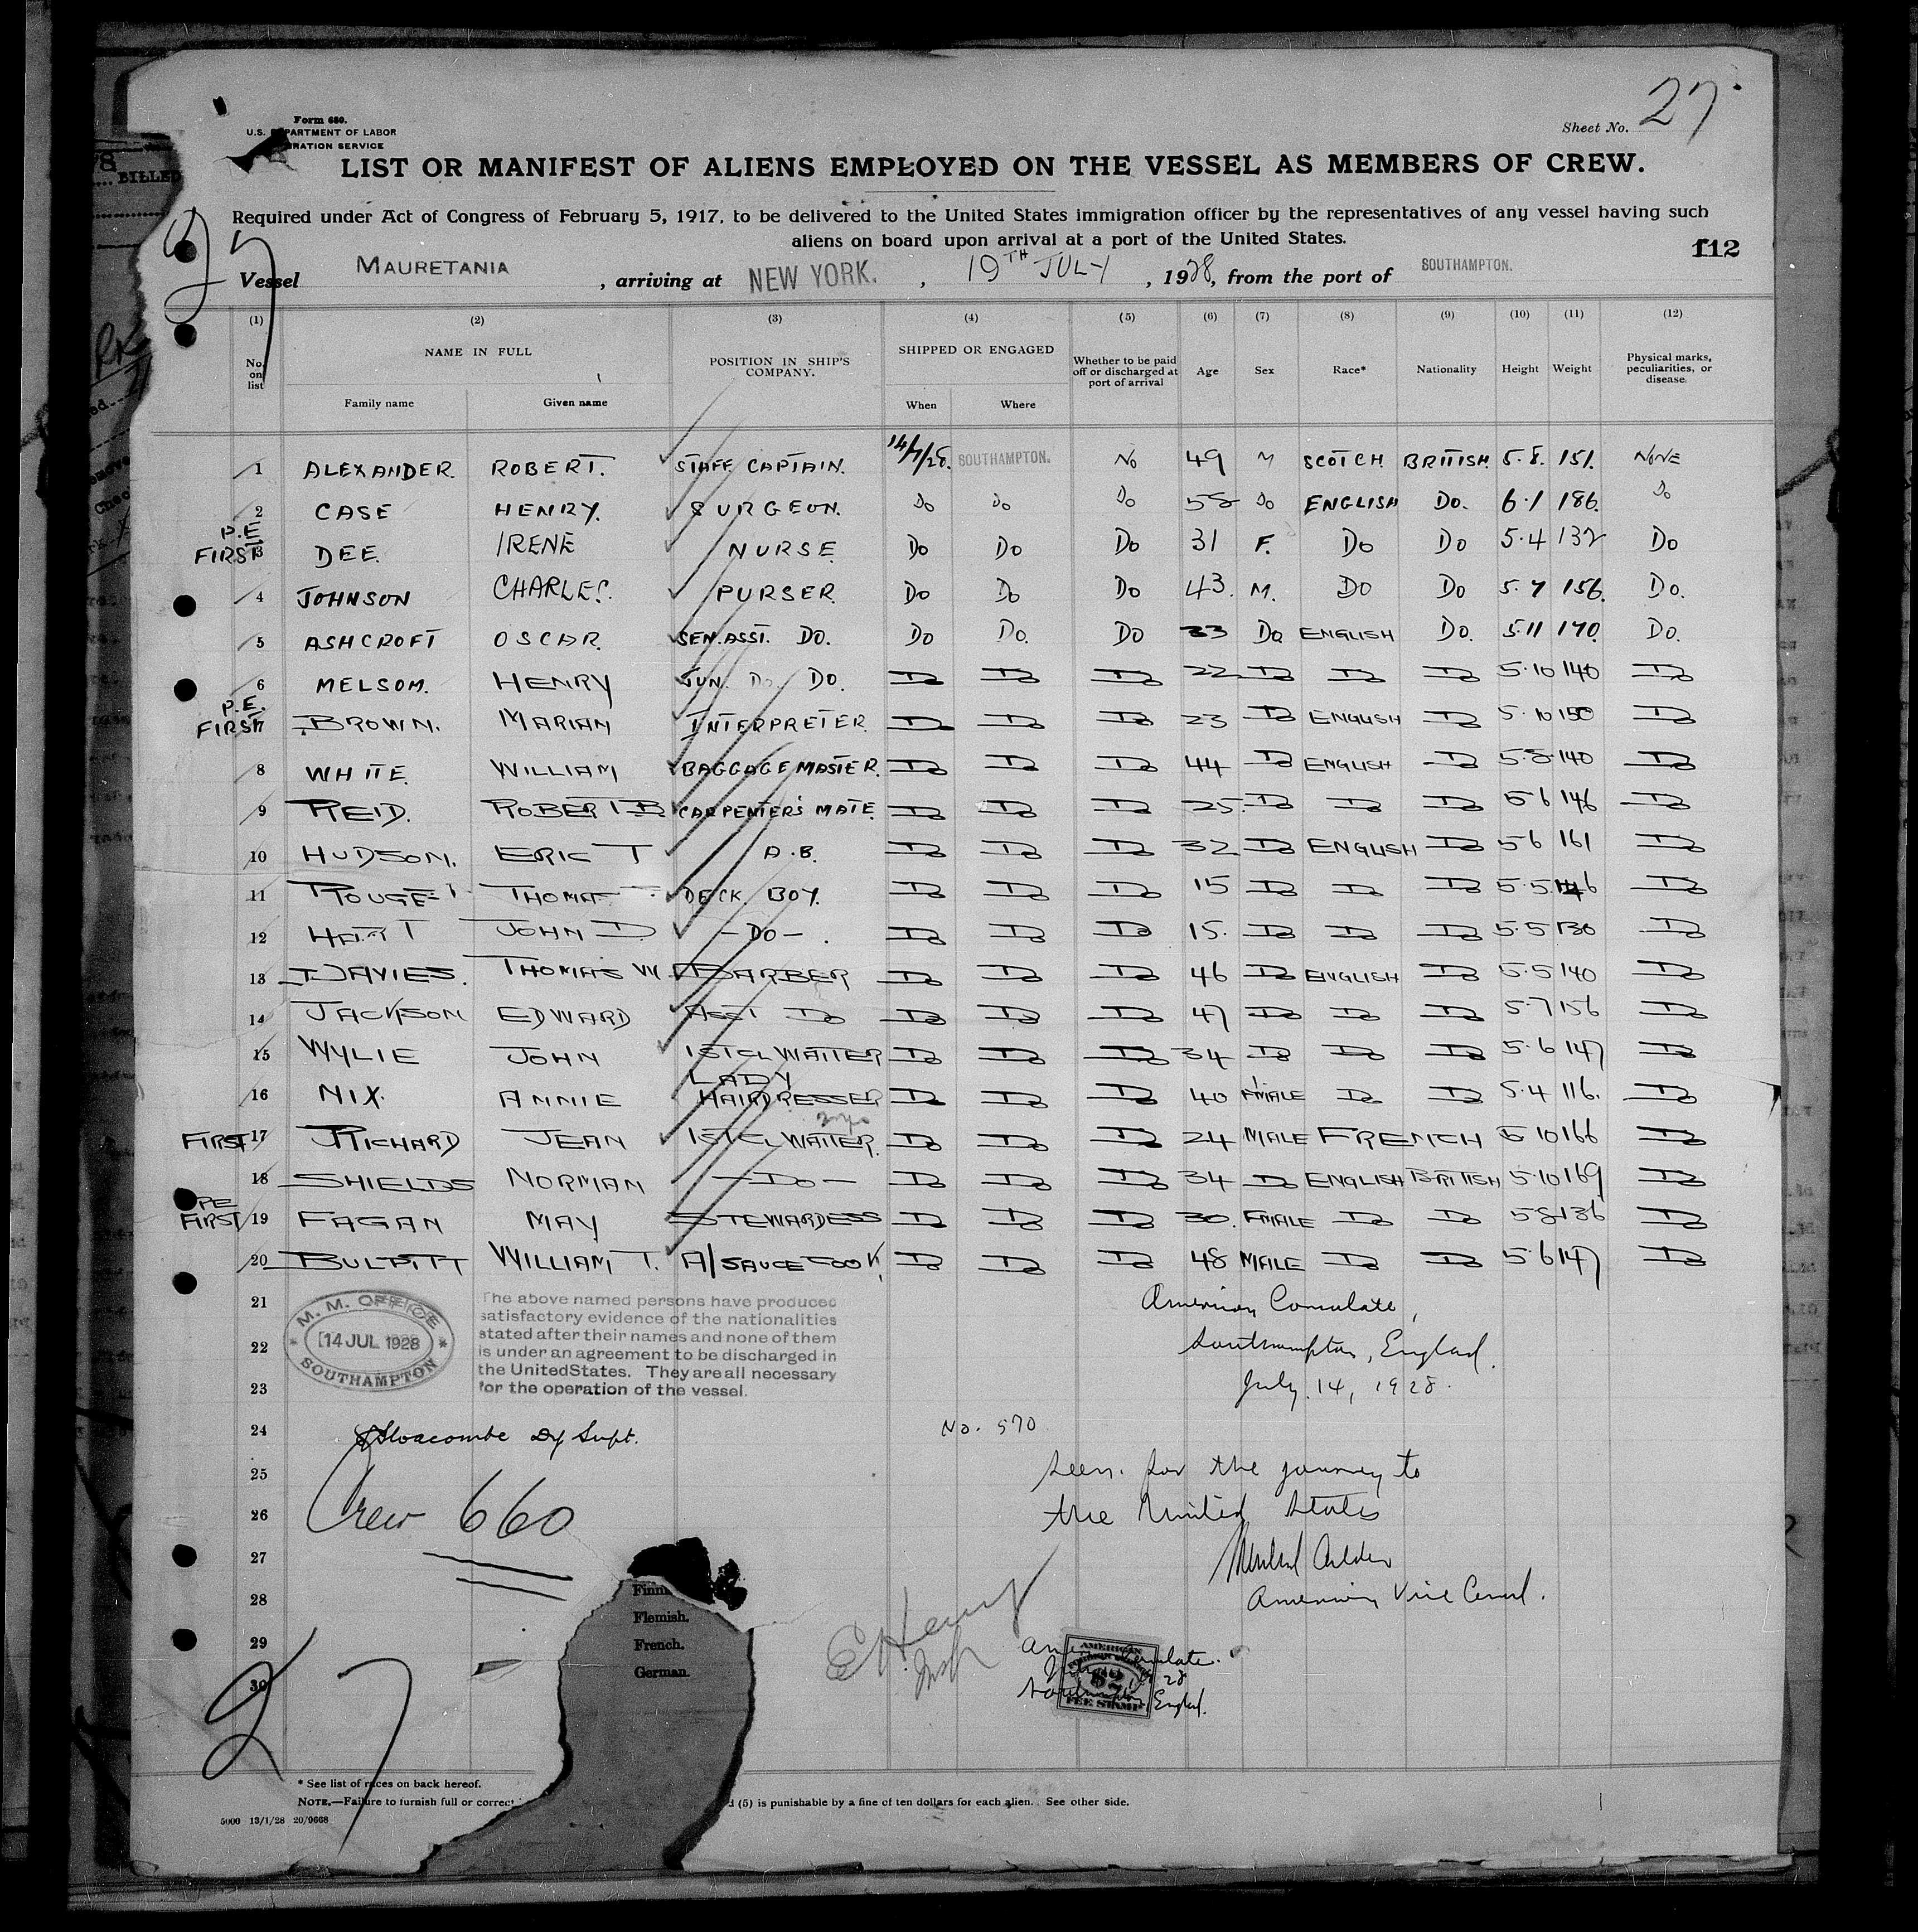 Form 680.
U.S. DEPARTMENT OF LABOR
RATION SERVICE
Sheet No. 27
LIST OR MANIFEST OF ALIENS EMPLOYED ON THE VESSEL AS MEMBERS OF CREW.
Required under Act of Congress of February 5, 1917, to be delivered to the United States immigration officer by the representatives of any vessel having such
aliens on board upon arrival at a port of the United States.
112
27
Vessel MAURETANIA, arriving at NEW YORK., 19TH JULY, 1928, from the port of SOUTHAMPTON.
(1) (2) (3) (4) (5) (6) (7) (8) (9) (10) (11) (12)
No. on list NAME IN FULL POSITION IN SHIP'S COMPANY. SHIPPED OR ENGAGED Whether to be paid off or discharged at port of arrival Age Sex Race* Nationality Height Weight Physical marks, peculiarities, or disease.
Family name Given name When Where
1 ALEXANDER. ROBERT. STAFF CAPTAIN. 14/7/28. SOUTHAMPTON. No 49 M SCOTCH BRITISH. 5.8. 151. NONE
2 CASE HENRY. SURGEON. Do Do Do 58 Do ENGLISH Do. 6.1 186. Do
P.E FIRST 3 DEE. IRENE NURSE Do Do Do 31 F. Do Do 5.4 132 Do
4 JOHNSON CHARLES. PURSER Do Do Do 43. M. Do Do 5.7 156. Do.
5 ASHCROFT OSCAR. SEN. ASST. Do. Do Do. Do 33 Do ENGLISH Do. 5.11 170. Do.
6 MELSOM. HENRY JUN. Do. Do. Do Do Do 22 Do Do Do 5.10 140 Do
P.E. FIRST 7 BROWN. MARIAN INTERPRETER Do Do Do 23 Do ENGLISH Do 5.10 150 Do
8 WHITE. WILLIAM BAGGAGE MASTER. Do Do Do 44 Do ENGLISH Do 5.8. 140 Do
9 REID. ROBERT B CARPENTER'S MATE. Do Do Do 25. Do Do Do 5 6 146 Do
10 HUDSON. ERIC T A.B. Do Do Do 32 Do ENGLISH Do 5 6 161 Do
11 THOMAS DECK BOY. Do Do Do 15 Do Do Do 5.5. Do
12 HART JOHN D. -Do-. Do Do Do 15. Do Do Do 5.5 130 Do
13 DAVIES. THOMAS W BARBER Do Do Do 46 Do ENGLISH Do 5.5 140 Do
14 JACKSON EDWARD ASST Do Do Do Do 47 Do Do Do 5.7 156 Do
15 WYLIE JOHN 1ST CL WAITER Do Do Do 34 Do Do Do 5.6 147 Do
16 NIX. ANNIE LADY HAIRDRESSER Do Do Do 40 FMALE Do Do 5.4 116. Do
FIRST 17 RICHARD JEAN 1ST CL WAITER. Do Do Do 24 MALE FRENCH 5 10 166 Do
18 SHIELDS NORMAN -Do- Do Do Do 34 Do ENGLISH BRITISH 5.10 169 Do
PE FIRST 19 FAGAN MAY STEWARDESS Do Do Do 30. FMALE Do Do 5 8 136 Do
20 BULPITT WILLIAM T. A/SAUCE COOK Do Do Do 48 MALE Do Do 5.6 147 Do
21
22
23
24
25
26
27
28
29
30
M. M. OFFICE
14 JUL 1928
SOUTHAMPTON
The above named persons have produced
satisfactory evidence of the nationalities
stated after their names and none of them
is under an agreement to be discharged in
the United States. They are all necessary
for the operation of the vessel.
Dy Supt.
Crew 660
American Consulate,
Southampton, England.
July 14, 1928.
No. 570
Seen for the journey to
the United States
American Vice Consul.
Flemish.
French.
German.
E Henry
Insp
AMERICAN
FEE STAMP
Consulate.
28
Southampton, England.
27
* See list of races on back hereof.
NOTE.—Failure to furnish full or correct
(5) is punishable by a fine of ten dollars for each alien. See other side.
5000 13/1/28 20/9668